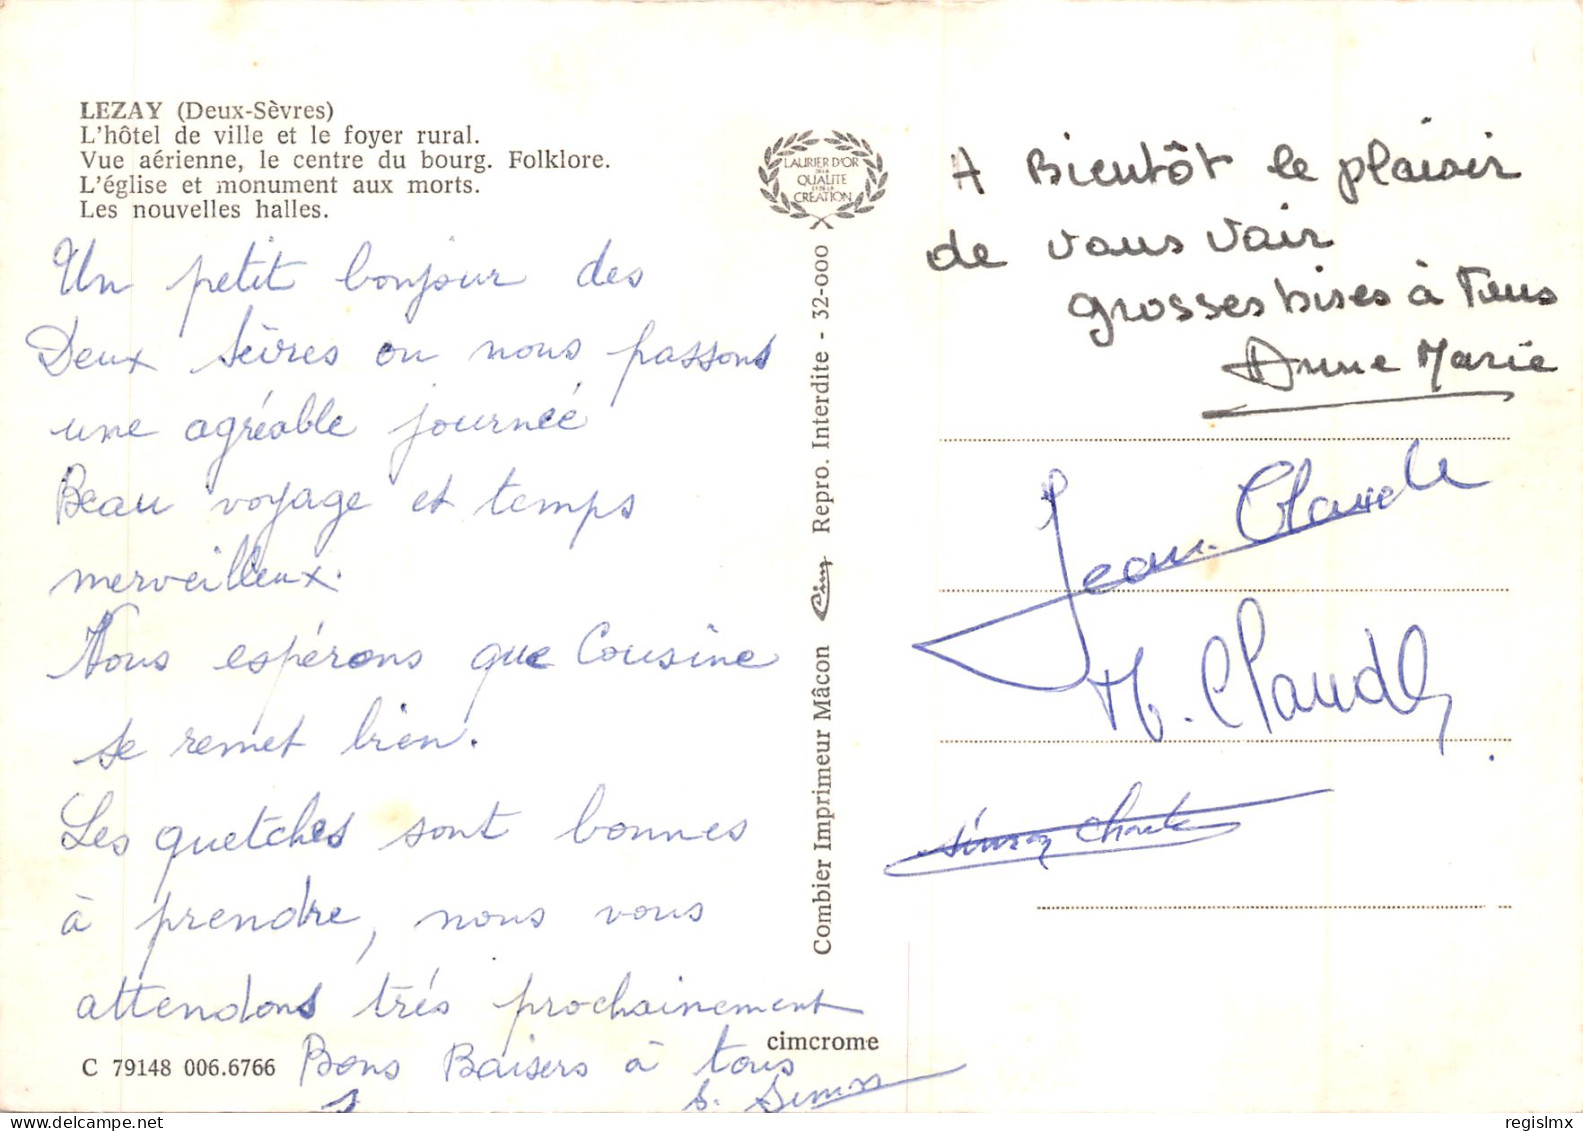 LEZAY (Deux-Sèvres)
L'hôtel de ville et le foyer rural.
Vue aérienne, le centre du bourg. Folklore.
L'église et monument aux morts.
Les nouvelles halles.
Un petit bonjour des
Deux Sèvres ou nous passons
une agréable journeé
Beau voyage et temps
merveilleux.
Nous espérons que Cousine
se remet bien.
Les quetches sont bonnes
à prendre, nous vous
attendons trés prochainement
Bons Baisers à tous
S.
C 79148 006.6766
cimcrome
LAURIER D'OR
DE LA
QUALITE
ET DE LA
CREATION
Combier Imprimeur Mâcon Cim Repro. Interdite - 32-000
A Bientôt le plaisir
de vous voir
grosses bises à Tous
Anne Marie
Jean-Claude
M. Claude
regislmx